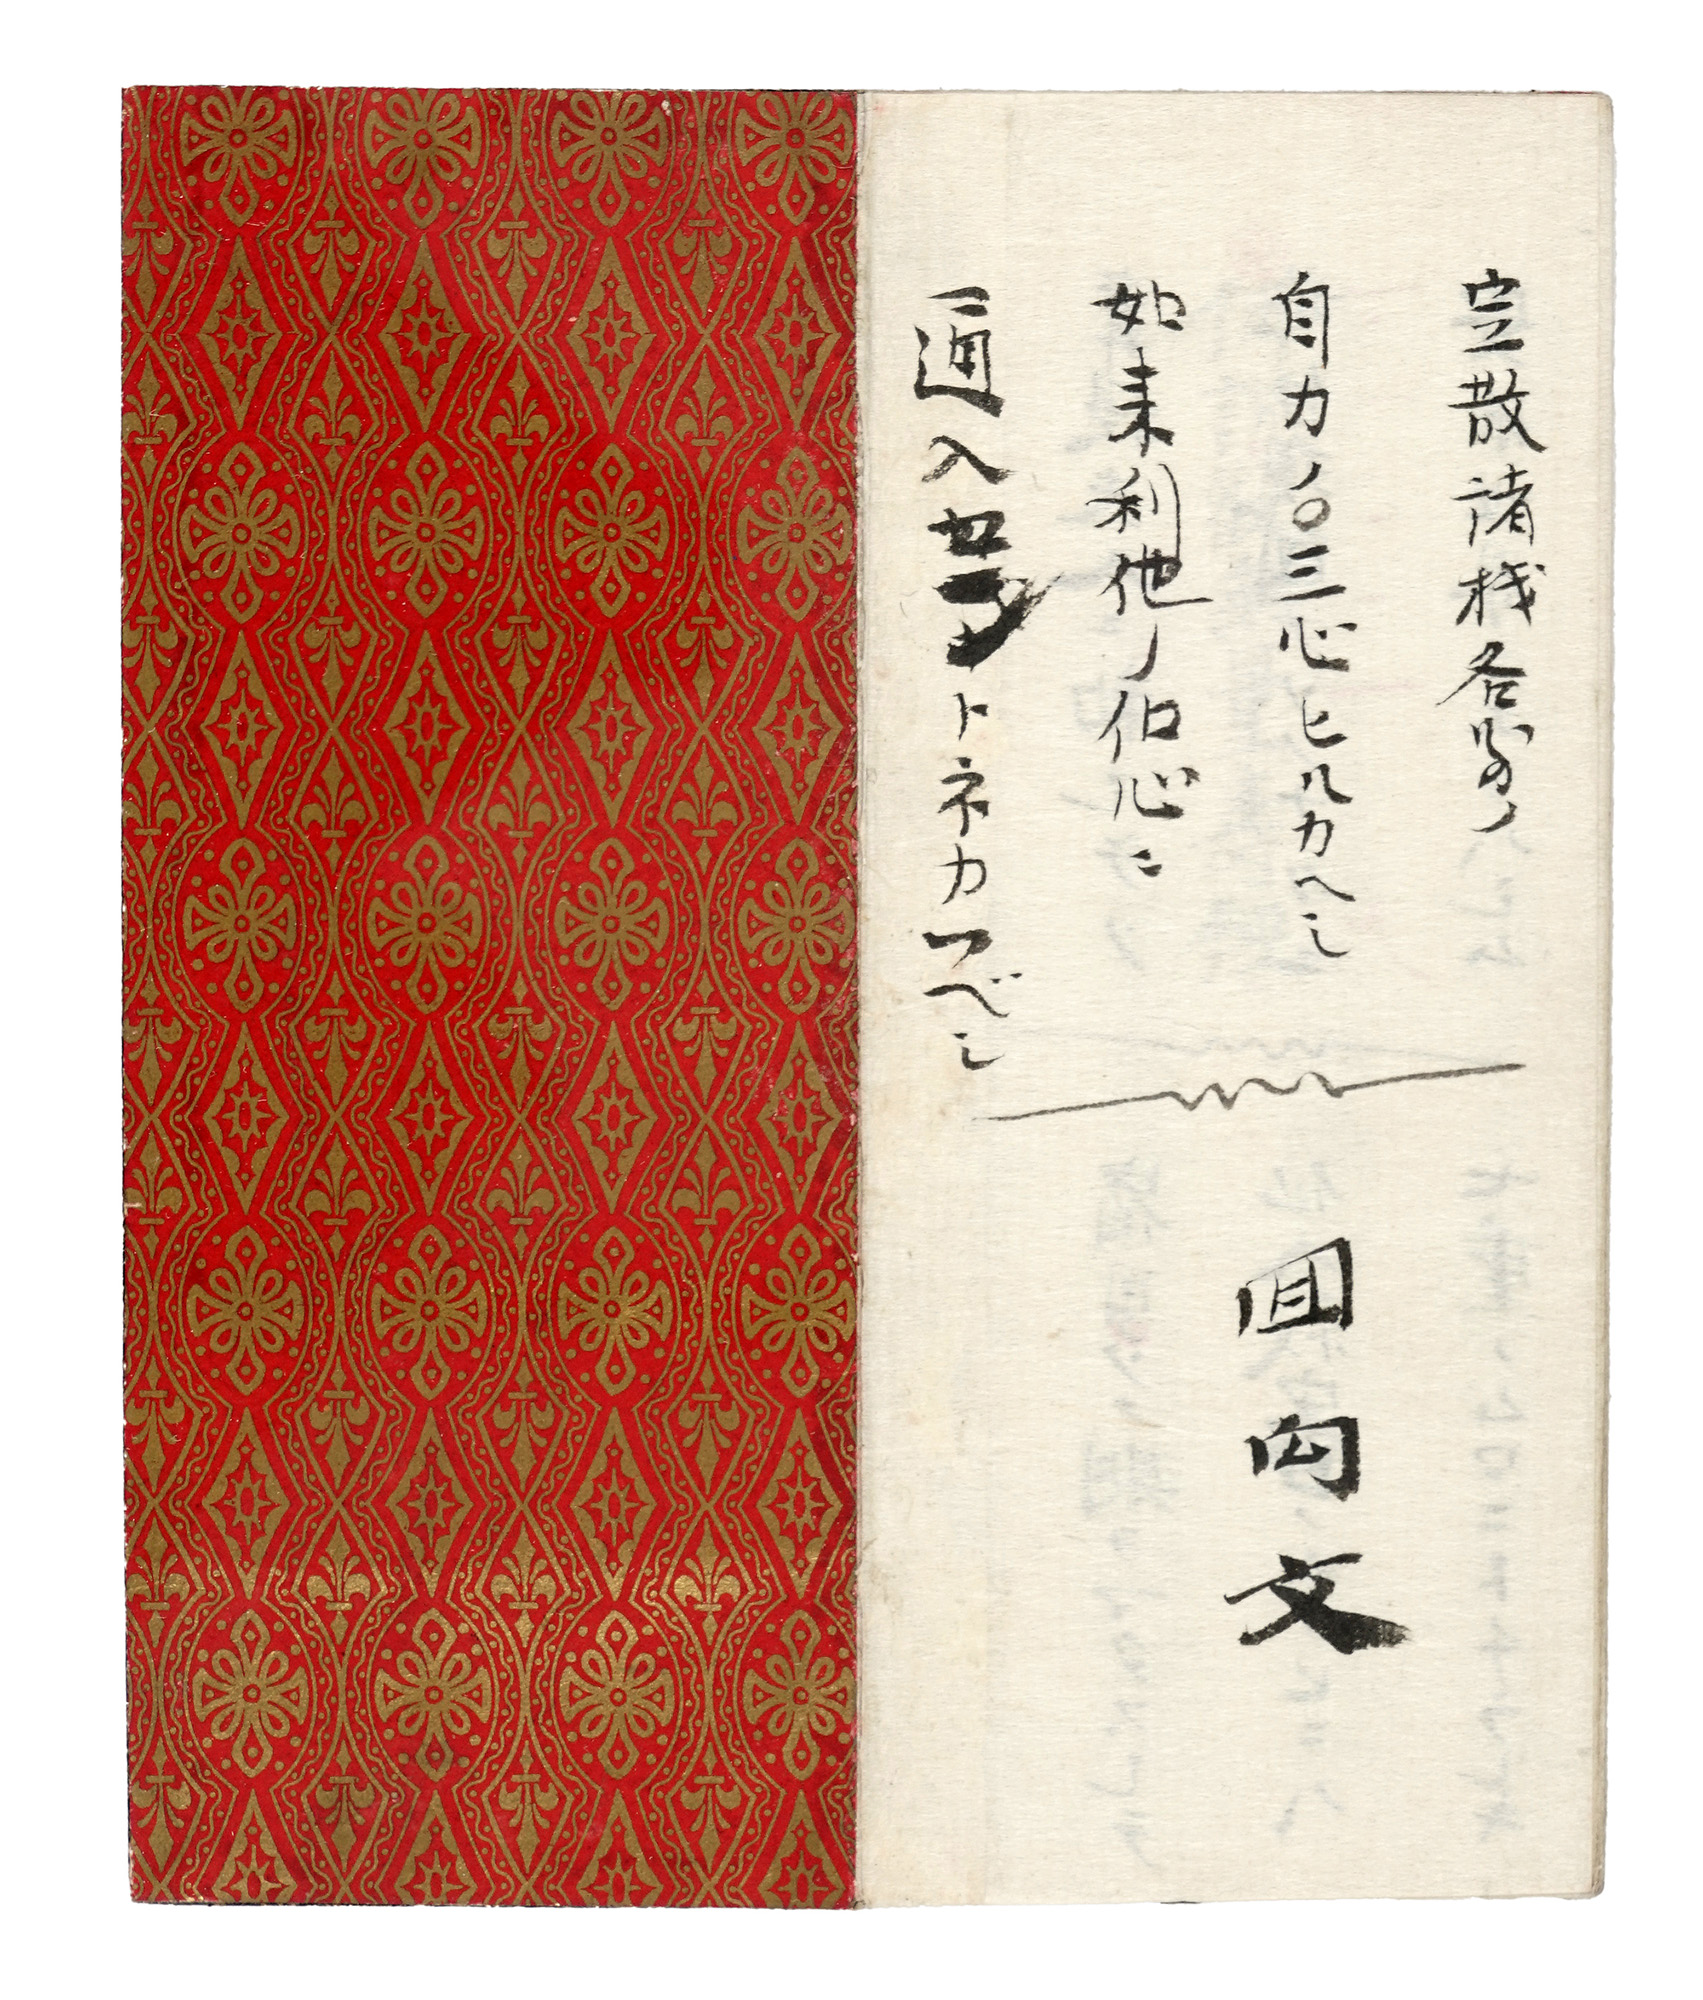 定散諸機各別ノ
自力ノ○三心ヒルカヘシ
如来利他ノ信心ニ
通入セトネカフベシ
回向文